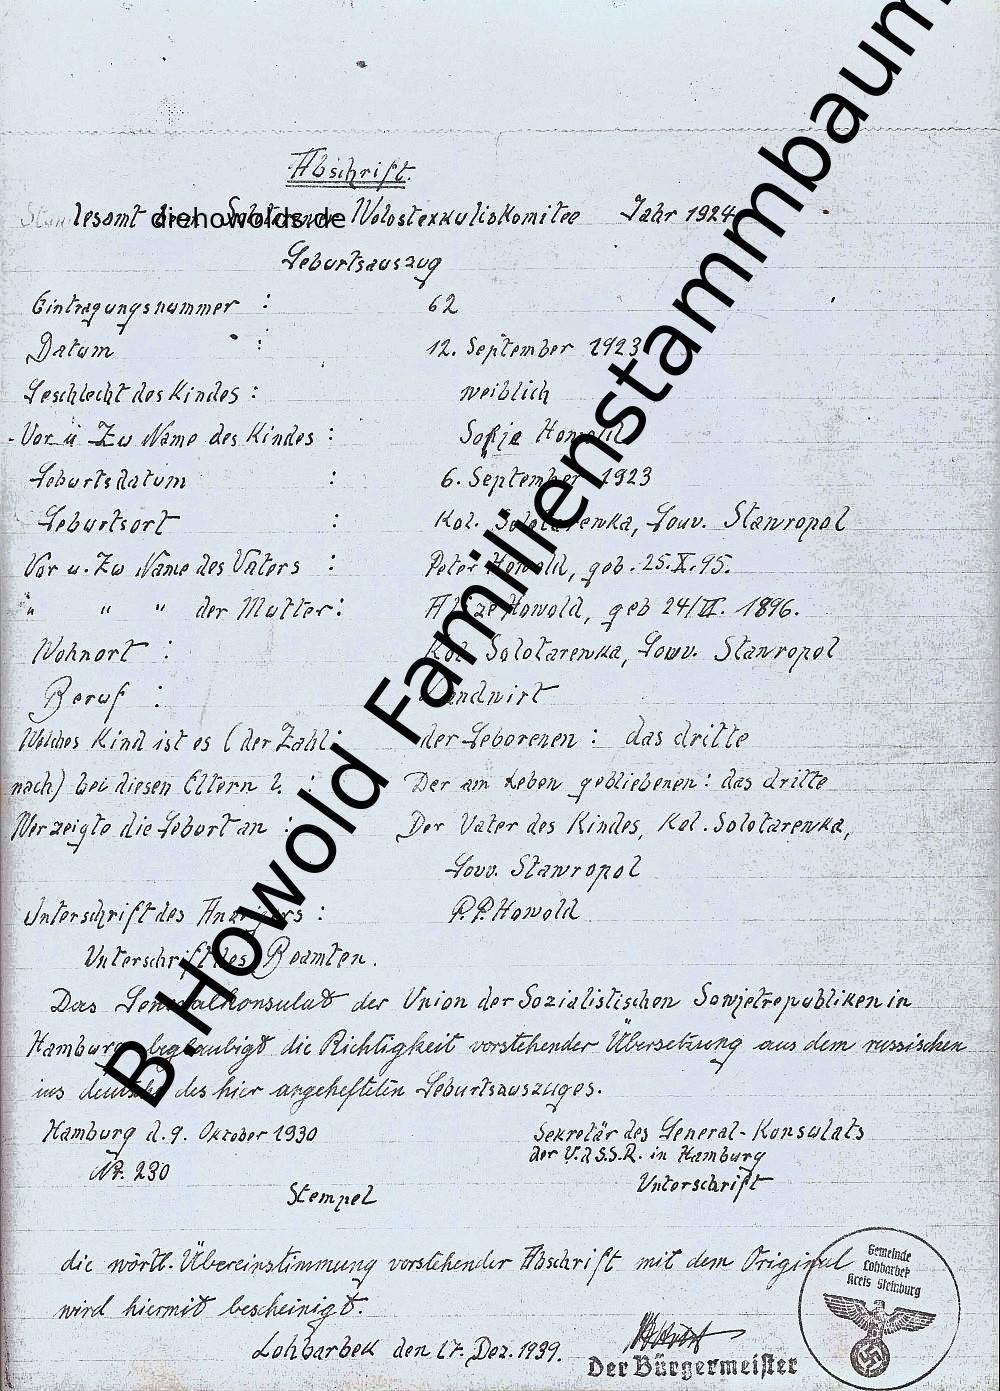 Abschrift.
Standesamt beim Wolostexekutivkomitee Jahr 1924
diehowolds.de
Geburtsauszug
Eintragungsnummer : 62
Datum : 12. September 1923
Geschlecht des Kindes : weiblich
Vor u Zu Name des Kindes : Sofja Howold
Geburtsdatum : 6. September 1923
Geburtsort : Kol. Solotarenka, Gouv. Stawropol
Vor u. Zu Name des Vaters : Peter Howold, geb. 25.X.95.
" " " der Mutter : Howold, geb 24/VI. 1896.
Wohnort : Kol. Solotarenka, Gouv. Stawropol
Beruf : Landwirt
Welches Kind ist es (der Zahl : der Geborenen : das dritte
nach) bei diesen Eltern ? : Der am Leben gebliebenen : das dritte
Wer zeigte die Geburt an : Der Vater des Kindes, Kol. Solotarenka,
Gouv. Stawropol
Unterschrift des Anzeigers : P.P. Howold
Unterschrift des Beamten.
Das Generalkonsulat der Union der Sozialistischen Sowjetrepubliken in
Hamburg beglaubigt die Richtigkeit vorstehender Übersetzung aus dem russischen
ins deutsche des hier angehefteten Geburtsauszuges.
Hamburg d. 9. Oktober 1930 Sekretär des General-Konsulats
der U.d.S.S.R. in Hamburg
Nr. 230 Unterschrift
Stempel
die wörtl. Übereinstimmung vorstehender Abschrift mit dem Original
wird hiermit bescheinigt.
Lohbarbek den 17. Dez. 1939.
Der Bürgermeister
Gemeinde
Lohbarbek
Kreis Steinburg
B Howold Familienstammbaum